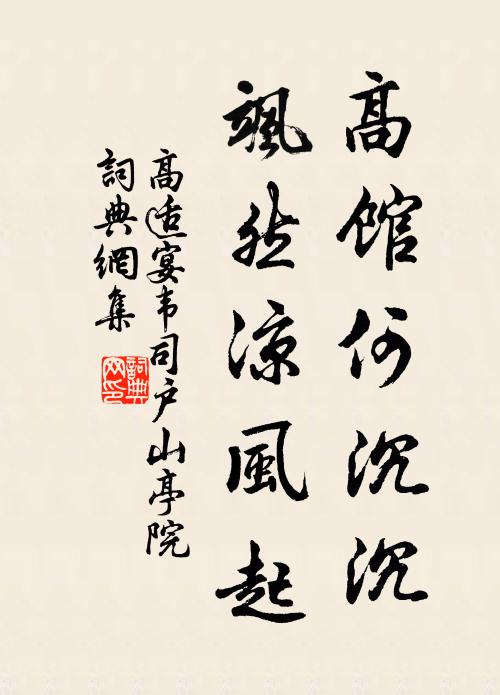 高館何沉沉
颯然涼風起
高适宴韦司户山亭院
詞典網集
詞典
网印